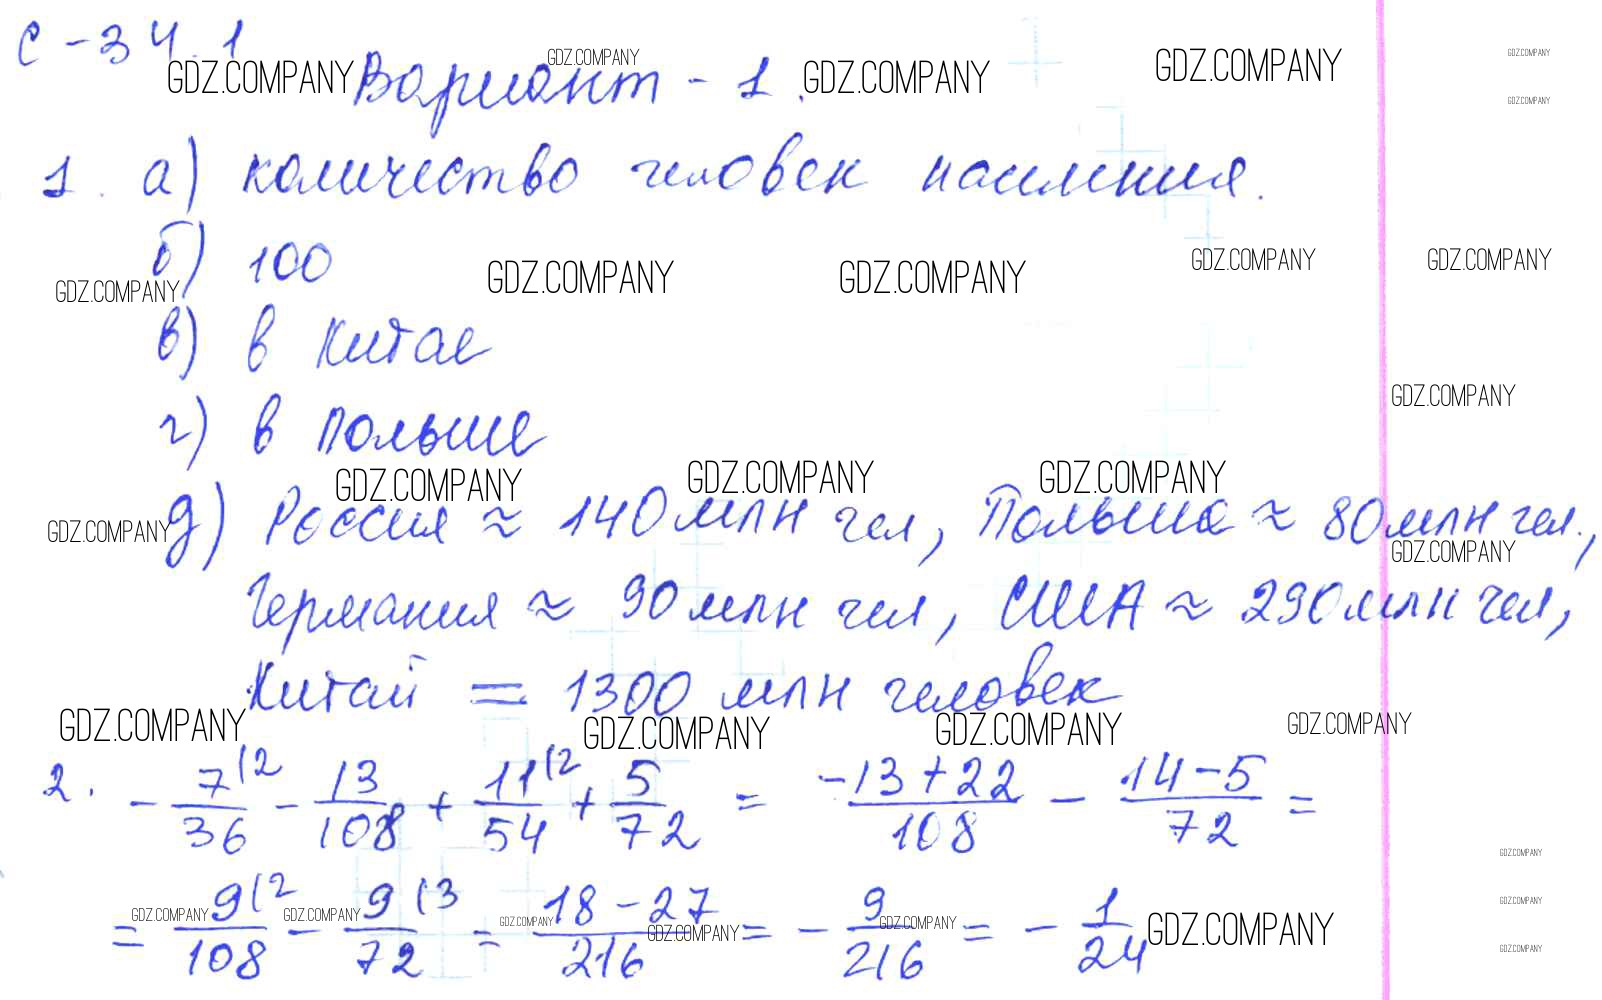 С - 34.1
GDZ.COMPANY Вариант - 1. GDZ.COMPANY GDZ.COMPANY GDZ.COMPANY GDZ.COMPANY
GDZ.COMPANY
1. а) количество человек населения.
б) 100
GDZ.COMPANY GDZ.COMPANY GDZ.COMPANY GDZ.COMPANY GDZ.COMPANY
в) в Китае
GDZ.COMPANY
г) в Польше
GDZ.COMPANY GDZ.COMPANY GDZ.COMPANY
GDZ.COMPANY д) Россия ≈ 140 млн чел, Польша ≈ 80 млн чел.,
GDZ.COMPANY
Германия ≈ 90 млн чел, США ≈ 290 млн чел,
Китай = 1300 млн человек
GDZ.COMPANY GDZ.COMPANY GDZ.COMPANY GDZ.COMPANY
2. - 7(2/36 - 13/108 + 11(2/54 + 5/72 = -13+22/108 - 14-5/72 =
GDZ.COMPANY
= 9(2/108 - 9(3/72 = 18-27/216 = - 9/216 = - 1/24
GDZ.COMPANY GDZ.COMPANY GDZ.COMPANY GDZ.COMPANY GDZ.COMPANY GDZ.COMPANY GDZ.COMPANY
GDZ.COMPANY